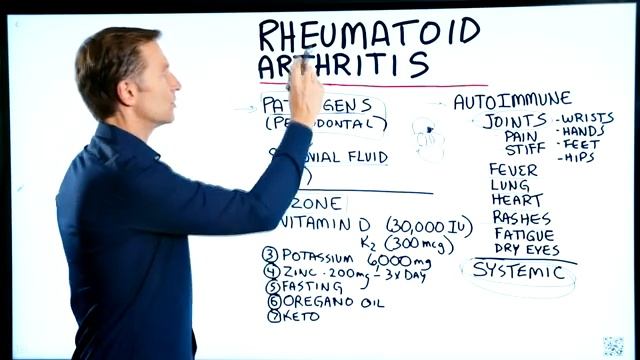 RHEUMATOID
ARTHRITIS
(PERIODONTAL)
FLUID
ZONE
VITAMIN D (30,000 IU)
K2 (300 mcg)
③ POTASSIUM 6000mg
④ ZINC - 200mg - 3X DAY
⑤ FASTING
⑥ OREGANO OIL
⑦ KETO
AUTOIMMUNE
JOINTS - WRISTS
PAIN - HANDS
STIFF - FEET
- HIPS
FEVER
LUNG
HEART
RASHES
FATIGUE
DRY EYES
SYSTEMIC